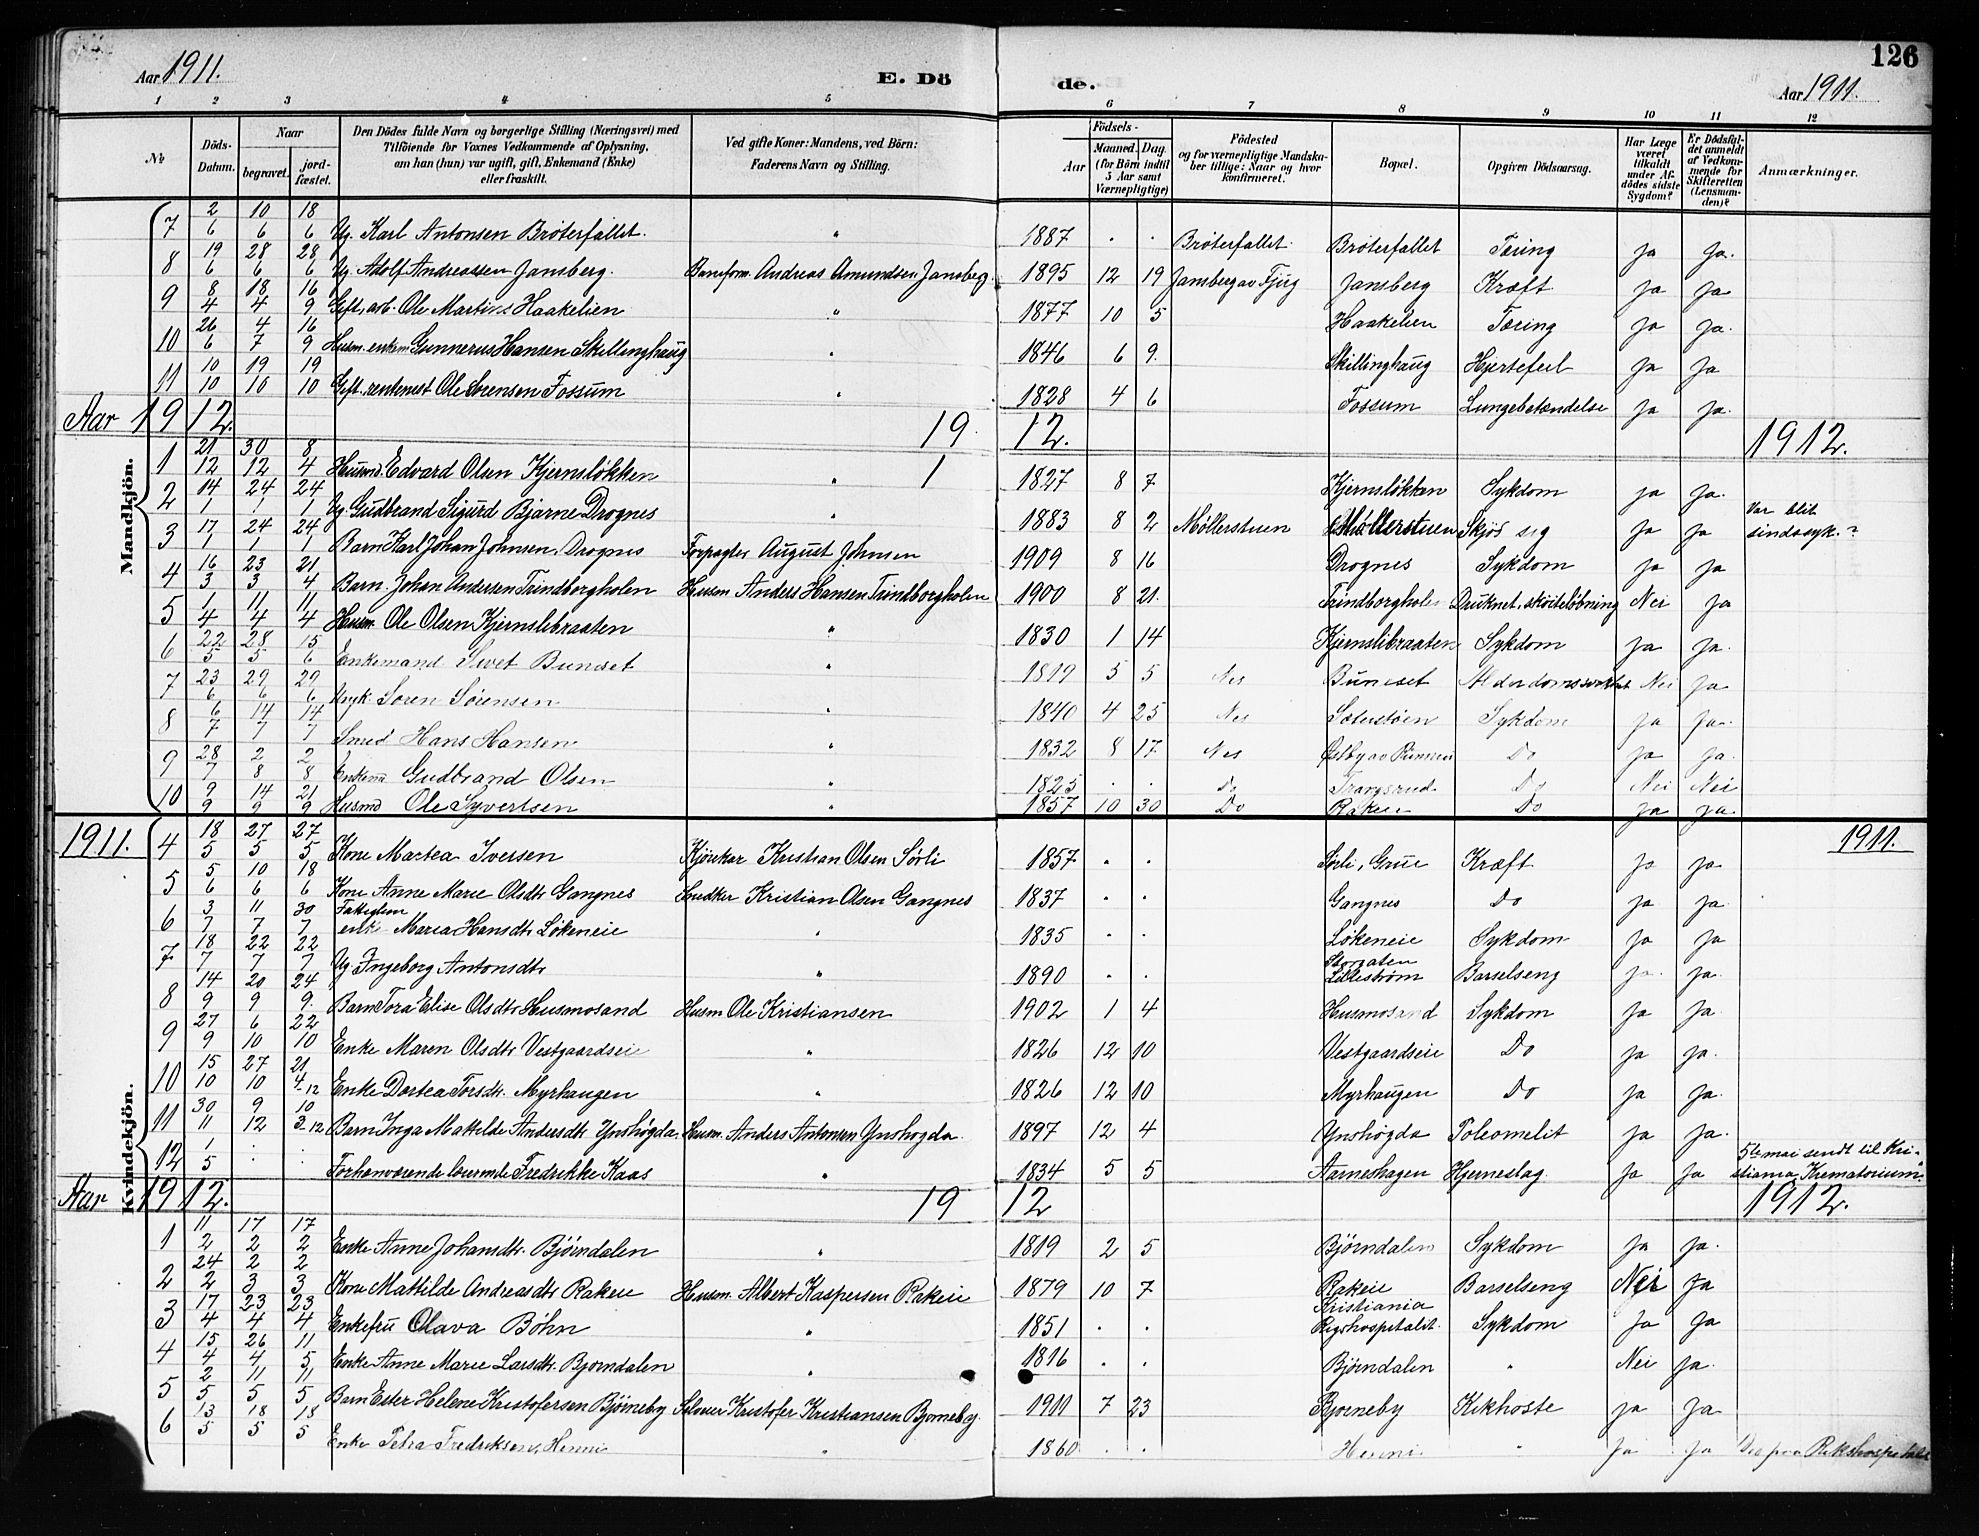 126
Aar 1911. E. Dö de. Aar 1911.
1 2 3 4 5 6 7 8 9 10 11 12
№ Döds-Datum. Naar begravet. jord-fæstet. Den Dödes fulde Navn og borgerlige Stilling (Næringsvei) med Tilföiende for Voxnes Vedkommende af Oplysning, om han (hun) var ugift, gift, Enkemand (Enke) eller fraskilt. Ved gifte Koner: Mandens, ved Börn: Faderens Navn og Stilling. Födsels- Aar Maaned. Dag. (for Börn indtil 5 Aar samt Værnepligtige) Födested og for værnepligtige Mandska-ber tillige: Naar og hvor konfirmeret. Bopæl. Opgiven Dödsaarsag. Har Læge været tilkaldt under Af-dödes sidste Sygdom? Er Dödsfal-det anmeldt af Vedkom-mende for Skifteretten (Lensman-den)? Anmærkninger.
Mandkjön.
7 2/6 10/6 18/6 Ug. Karl Antonsen Bröterfallet. " 1887 . . Bröterfallet. Bröterfallet Tæring ja ja.
8 19/6 28/6 28/6 Ug. Adolf Andreassen Jansberg. Barnefomm. Andreas Amundsen Jansberg. 1895 12 19 Jansberg av Fjug Jansberg Kræft ja ja
9 8/4 18/4 16/9 Gift, arb. Ole Martins Haakelien " 1877 10 5 Haakelien Tæring ja ja.
10 26/6 4/7 16/9 Husm. enkem Gunnerus Hansen Skillinghaug " 1846 6 9. Skillinghaug Hjertefeil ja ja
11 10/10 19/10 19/10 Gift, rentenist Ole Sørensen Fossum " 1828 4 6 Fossum Lungebetændelse ja ja.
Aar 1912. 1912. 1912.
1 21/12 30/12 8/4 Husmd. Edvard Olsen Kjernsløkken " 1 1827 8 7 Kjernsløkken Sykdom ja ja.
2 14/1 24/1 24/1 Ug. Gudbrand Sigurd Bjarne Drognes " 1883 8 2 Møllerstuen Møllerstuen Skjöd sig ja ja Var blit sindssyk.?
3 17/1 24/1 24/1 Barn Karl Johan Johnsen, Drognes Forpagter August Johnsen 1909 8 16 Drognes Sykdom ja ja
4 16/3 23/3 21/4 Barn. Johan Andersen Trindborgholen Husm. Anders Hansen Trindborgholen 1900 8 21. Trindborgholen Druknet, skøiteløbning Nei ja
5 1/4 11/4 11/4 Husm. Ole Olsen Kjernslibraaten " 1830 1 14 Kjernslibraaten Sykdom ja ja.
6 22/5 28/5 15/6 Enkemand Sivet Bunæset " 1819 5 5 Nes Bunæset Alderdomssvakhet Nei ja
7 23/6 29/6 29/6 Søren Sørensen " 1840 4 25 Nes Sæterstøen Sykdom ja ja.
8 6/7 14/7 14/7 Smed Hans Hansen " 1832 8 17. Nes Østby av Do ja ja.
9 28/7 2/8 2/8 Enkem Gudbrand Olsen " 1825 . . Do Trangsrud Do Nei Nei
10 9/9 14/9 21/9 Husmd Ole Syvertsen " 1857 10 30 Do Rakeie Do ja ja.
1911. 1911.
Kvindekjön.
4 18/5 27/5 27/5 Kone Martea Iversen Kjörekar Kristian Olsen Sörli 1857 . . Sörli, Grue Kræft ja ja
5 5/6 10/6 18/6 Kone Anne Marie Olsdtr Gangnes Snedker Kristian Olsen Gangnes 1837 . . Gangnes Do ja ja.
6 3/7 11/7 30/7 Fattiglem enke Maria Hansdtr Løkeneie " 1835 . . Løkeneie Sykdom ja ja
7 18/7 22/7 22/7 Ug. Ingeborg Antonsdtr " 1890 . . Storgaten Lillestrøm Barselseng ja. ja.
8 14/9 20/9 24/9. Barn Tora Elise Olsdtr Husmosand Husm Ole Kristiansen 1902 1 4 Husmosand Sykdom ja ja.
9 27/9 6/10 22/10 Enke Maren Olsdtr Vestgaardseie " 1826 12 10 Vestgaardseie Do ja ja.
10 15/10 27/10 21/4-12 Enke Dortea Torsdtr. Myrhaugen " 1826 12 10 Myrhaugen Do ja ja.
11 30/11 9/12 10/3-12 Barn Inga Matilde Andersdtr Ynshögda. Husm. Anders Antonsen Ynshögda. 1897 12 4 Ynshögda Poleomelit ja ja.
12 1/5 : : Forhenværende lærerinde Fredrikke Kaas " 1834 5 5 Aarneshagen Hjerneslag ja ja 5te mai sendt til Kri-stiania Krematorium.
Aar 1912. 1912 1912.
1 11/2 17/2 17/2 Enke Anne Johansdtr. Bjørndalen " 1819 2 5 Bjørndalen Sykdom ja ja.
2 24/2 2/3 2/3 Kone Mathilde Andreasdtr Rakeie Husm. Albert Kaspersen Rakeie 1879 10 7 Rakeie Barselseng Nei ja
3 17/4 23/4 23/4 Enkefru Olava Böhn " 1851 . . Kristiania Rigshospitalet. Sykdom ja ja
4 15/4 26/4 11/5 Enke Anne Marie Larsdtr. Bjorndalen " 1816 . . Bjørndalen " Nei ja.
5 2/5 11/5 11/5 Barn Ester Helene Kristofersen Bjørneby Kristofer Kristiansen Bjorneby. 1911 7 23 Bjorneby Kikhoste ja ja
6 13/5 18/5 18/5 Enke Petra Fredriksen, Henni " 1860. . . Henni " ja ja Død paa Rikshospitalet